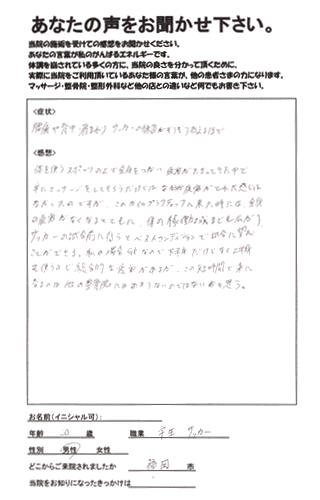 あなたの声をお聞かせ下さい。
当院の施術を受けての感想をお聞かせください。
あなたの言葉が私のがんばるエネルギーです。
体調を崩されている多くの方に、当院の良さを分かって頂くために、
実際に当院をご利用頂いているあなた様の言葉が、他の患者さまの力になります。
マッサージ・整骨院・整形外科など他の店との違いなど何でもお書き下さい。
<症状>
腰痛や背中 肩まわり サッカーの
<感想>
体を使うスポーツの上で全身をつかって疲労がたまってきた中で
単にマッサージをしてもらうだけでは なかなか疲労がとれた感じは
なかったのですが、この に来た時には、全身
の疲労がなくなるとともに、体の稼働域までも広がり
サッカーの試合前に行うとベストコンディションで試合に望む
ことができる。私の場合GKなので下半身だけでなく上半身
も使うなど総合的な があるが、この短時間で
なるのは他の整骨院にはあまりないのではないかと思う。
お名前(イニシャル可):
年齢 20 歳 職業 学生 サッカー
性別 男性 女性
どこからご来院されましたか 福岡 市
当院をお知りになったきっかけは